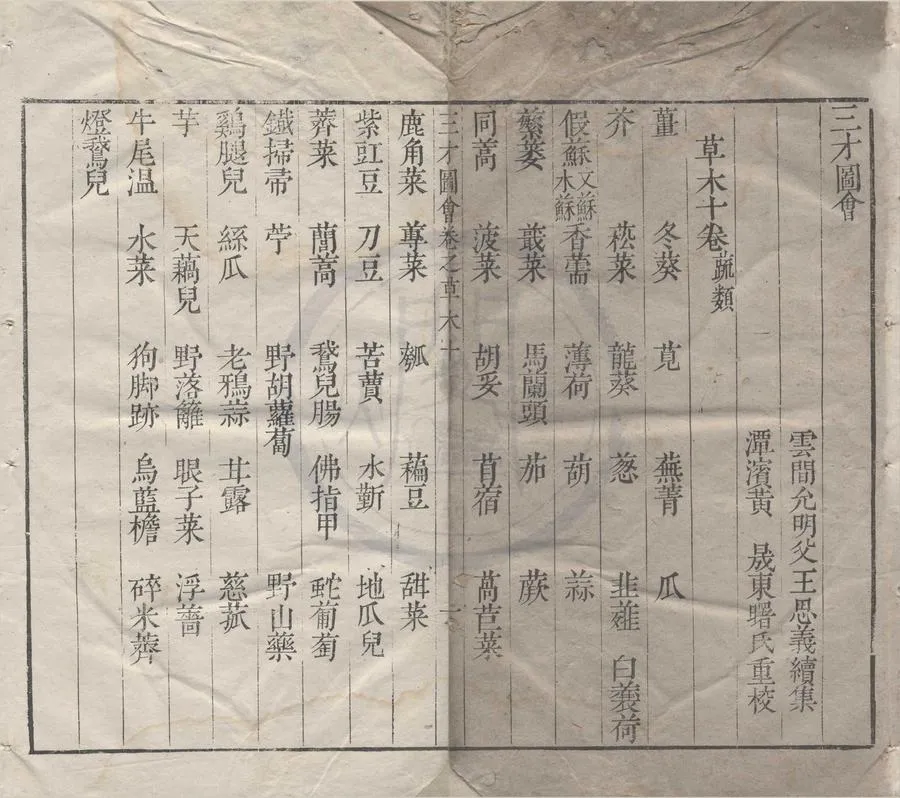 三才圖會
雲間允明父王思義續集
潭濱黃 晟東曙氏重校
草木十卷蔬類
薑 冬葵 莧 蕪菁 瓜
芥 菘菜 龍葵 葱 韭薤 白蘘荷
假蘇文蘇水蘇 香薷 薄荷 葫 蒜
蘩蔞 蕺菜 馬蘭頭 茄 蕨
同蒿 菠菜 胡荽 苜宿 萵苣菜
三才圖會卷之草木十 一
鹿角菜 蓴菜 瓠 藊豆 甜菜
紫豇豆 刀豆 苦藚 水靳 地瓜兒
薺菜 蕳蒿 鵞兒腸 佛指甲 蛇葡萄
鐵掃帚 苧 野胡蘿蔔 野山藥
鷄腿兒 絲瓜 老鴉蒜 甘露 慈菰
芋 天藕兒 野落籬 眼子菜 浮薔
牛尾溫 水菜 狗脚跡 烏藍檐 碎米薺
燈鵞兒